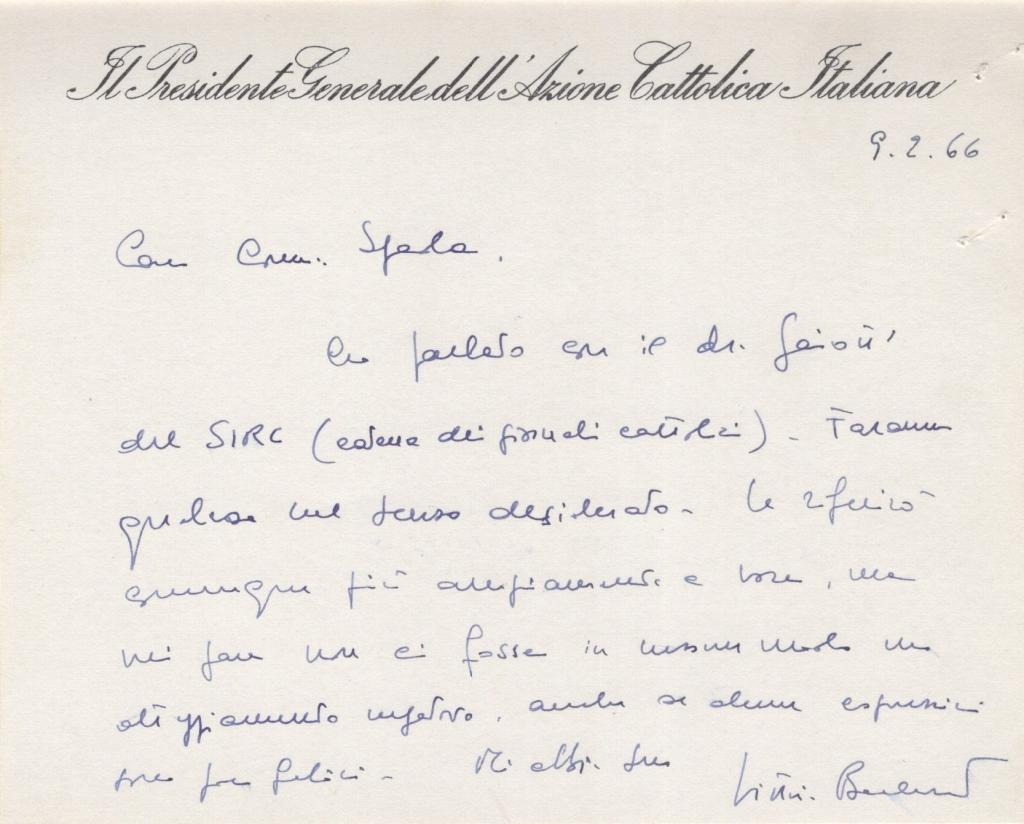 Il Presidente Generale dell'Azione Cattolica Italiana
9.2.66
Caro Comm. Spada,
ho parlato con il dr.
del SIRC (catena dei giornali cattolici). Faranno
qualcosa nel senso desiderato. Le riferirò
comunque più ampiamente a voce, ma
mi pare non ci fosse in nessun modo un
atteggiamento negativo, anche se alcune espressioni
sono poco felici. Mi abbia suo
Vittorio Bachelet